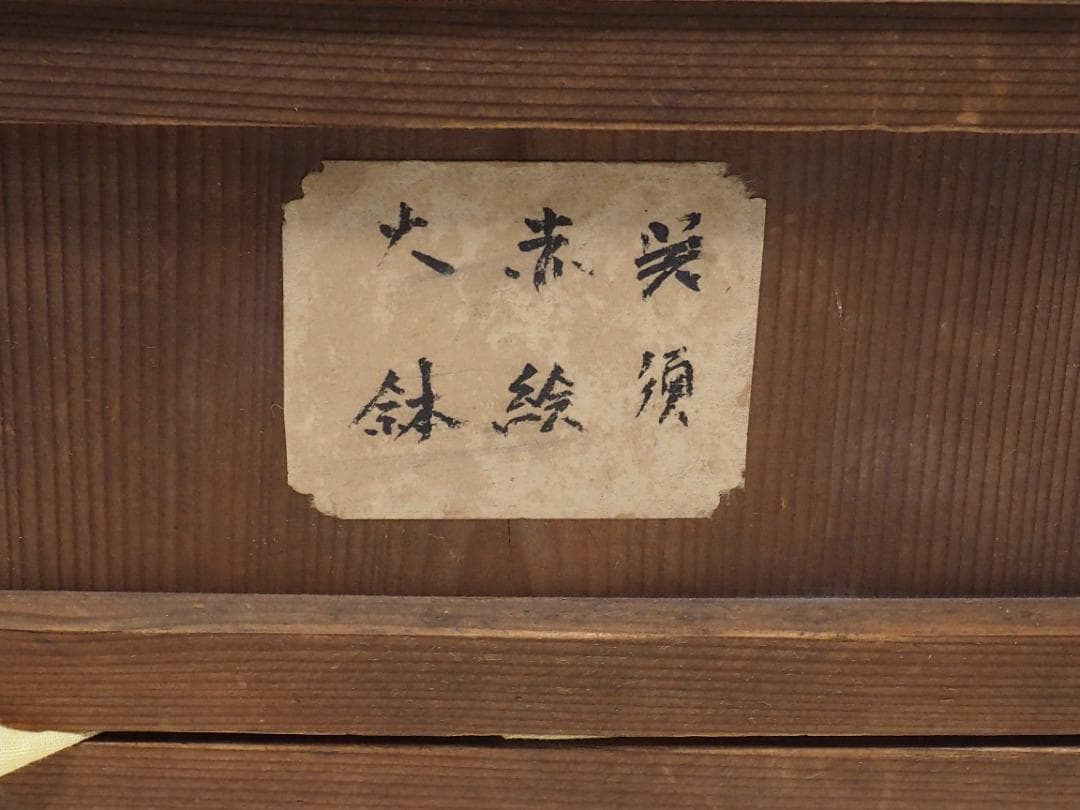 呉須
赤絵
大鉢